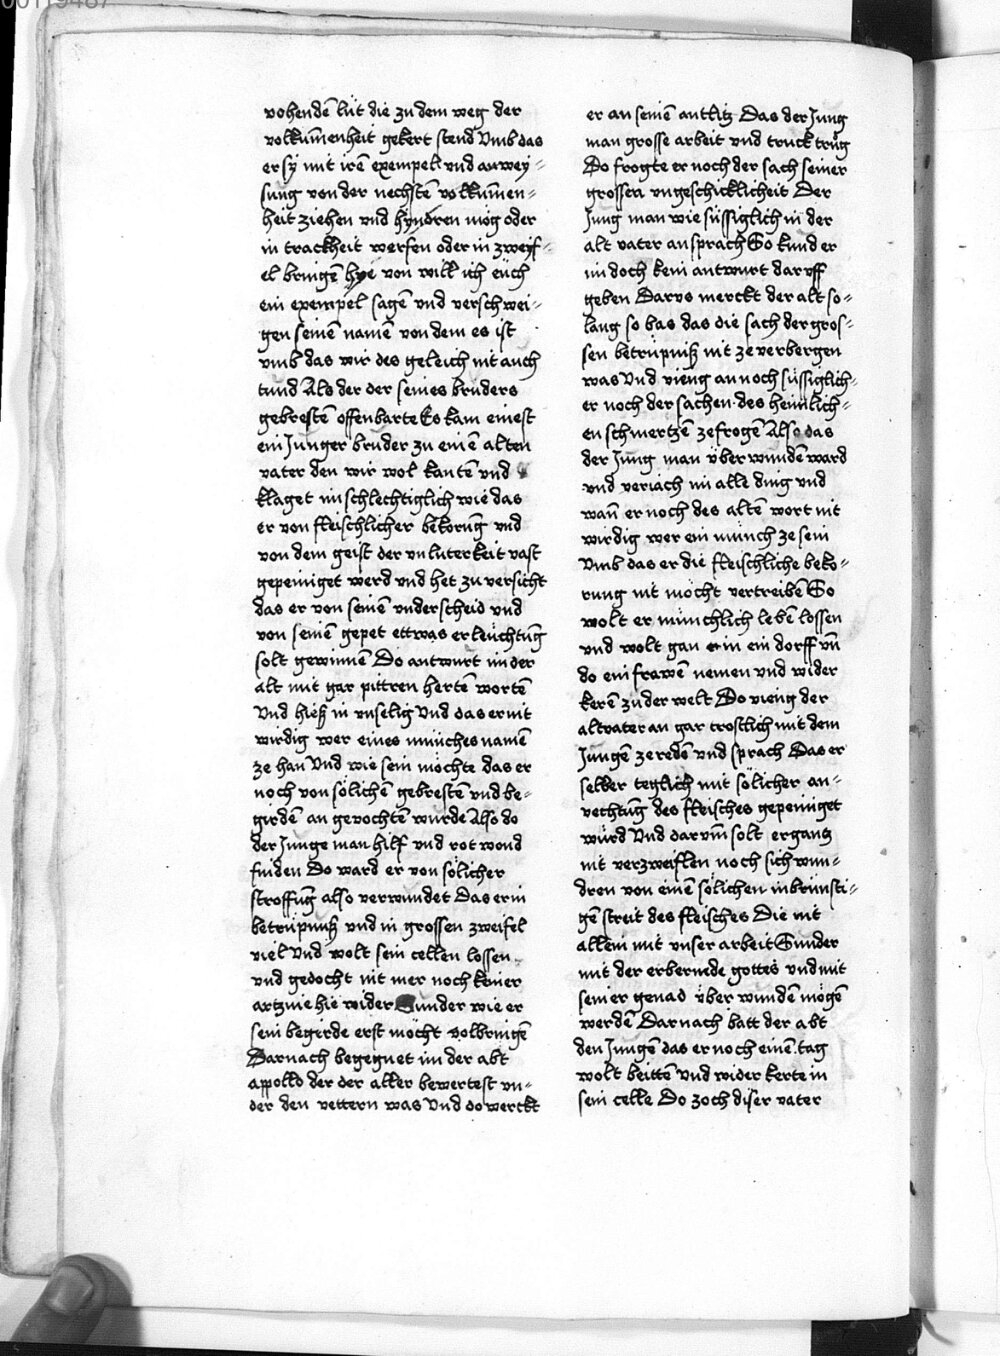 00119487
vohendē lüt die zu dem weg der
volkūmenheit gekert stend Vmb das
er sy mit irē exempel vnd anwey-
sung von der nechstē volkūmen-
heit ziehen vnd hyndren mög oder
in trackheit werfen oder in zweyf-
el bringē hye von will ich eüch
ein exempel sagē vnd verschwei-
gen seinē namē von dem es ist
vmb das wir des geleich nit auch
tund Als der der seines bruders
gebrestē offenbarte Es kam einest
ein Junger bruder zu einē alten
vater den wir wol kantē vnd
klaget im schlechtiglich wie das
er von fleischlicher bekorūg vnd
von dem geist der vnluterkeit vast
gepeiniget werd vnd het zu versicht
das er von seinē vnderscheid vnd
von seinē gepet ettwas erleüchtūg
solt gewinnē Do antwurt im der
alt mit gar pittren hertē wortē
Vnd hieß in vnselig Vnd das er nit
wirdig wer eines münches namē
ze han Vnd wie sein möchte das er
noch von sölichē gebrestē vnd be-
girdē an gevochtē wurde Also do
der Junge man hilf vnd rot wond
finden Do ward er von sölicher
stroffūg also verwundet Das er in
betrüpnuß vnd in grossen zweifel
viel Vnd wolt sein cellen lossen
vnd gedocht nit mer noch keiner
artznie hie wider Sunder wie er
sein begerde erst möcht volbringē
Darnach begegnet im der abt
appollo der der aller bewertest vn-
der den vettern was Vnd do merckt
er an seinē antlitz Das der Jung
man grosse arbeit vnd truck trůg
Do frogte er noch der sach seiner
grossen vngeschicklicheit Der
Jung man wie süssiglich in der
alt vater ansprach So kund er
im doch kein antwurt daruff
geben Darvs merckt der alt so-
lang so bas das die sach der gros-
sen betrüpniß nit ze verbergen
was Vnd vieng an noch süssiglich-
er noch der sachen des heimlich-
en schmertzē ze frogē Also das
der Jung man überwundē ward
vnd veriach im alle ding vnd
wan̄ er noch des altē wort nit
wirdig wer ein münch ze sein
Vmb das er die fleischliche beko-
rung nit möcht vertreibē So
wolt er münchlich lebē lossen
vnd wolt gan in ein dorff vn̄
do ein frawē nemen vnd wider
kerē zu der welt Do vieng der
altvater an gar trostlich mit dem
Jungē ze redē vnd sprach Das er
selber teglich mit sölicher an-
vechtūg des fleisches gepeiniget
würd Vnd darvm̄ solt er gantz
nit verzweiflen noch sich wun-
dren von einē sölichen inbrünsti-
gē streit des fleisches Die nit
allein mit vnser arbeit Sunder
mit der erbermde gottes vnd mit
seiner genad überwundē mögē
werdē Darnach batt der abt
den Jungē das er noch einē tag
wolt beittē Vnd wider kerte in
sein celle Do zoch diser vater